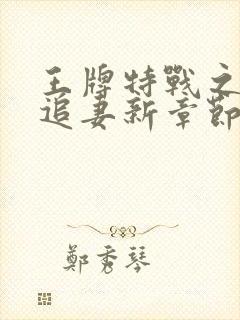 王牌特戰之
追妻新章節
鄭秀琴